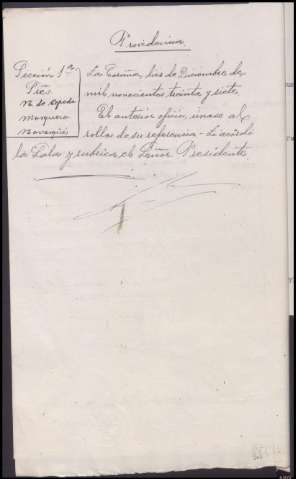 Providencia
Sección 1ª
Pres
Mosquera
La Coruña, tres de Diciembre de
mil novecientos treinta y siete.
El anterior oficio, únase al
rollo de su referencia. Lo acordó
la Sala y rubrica el Señor Presidente